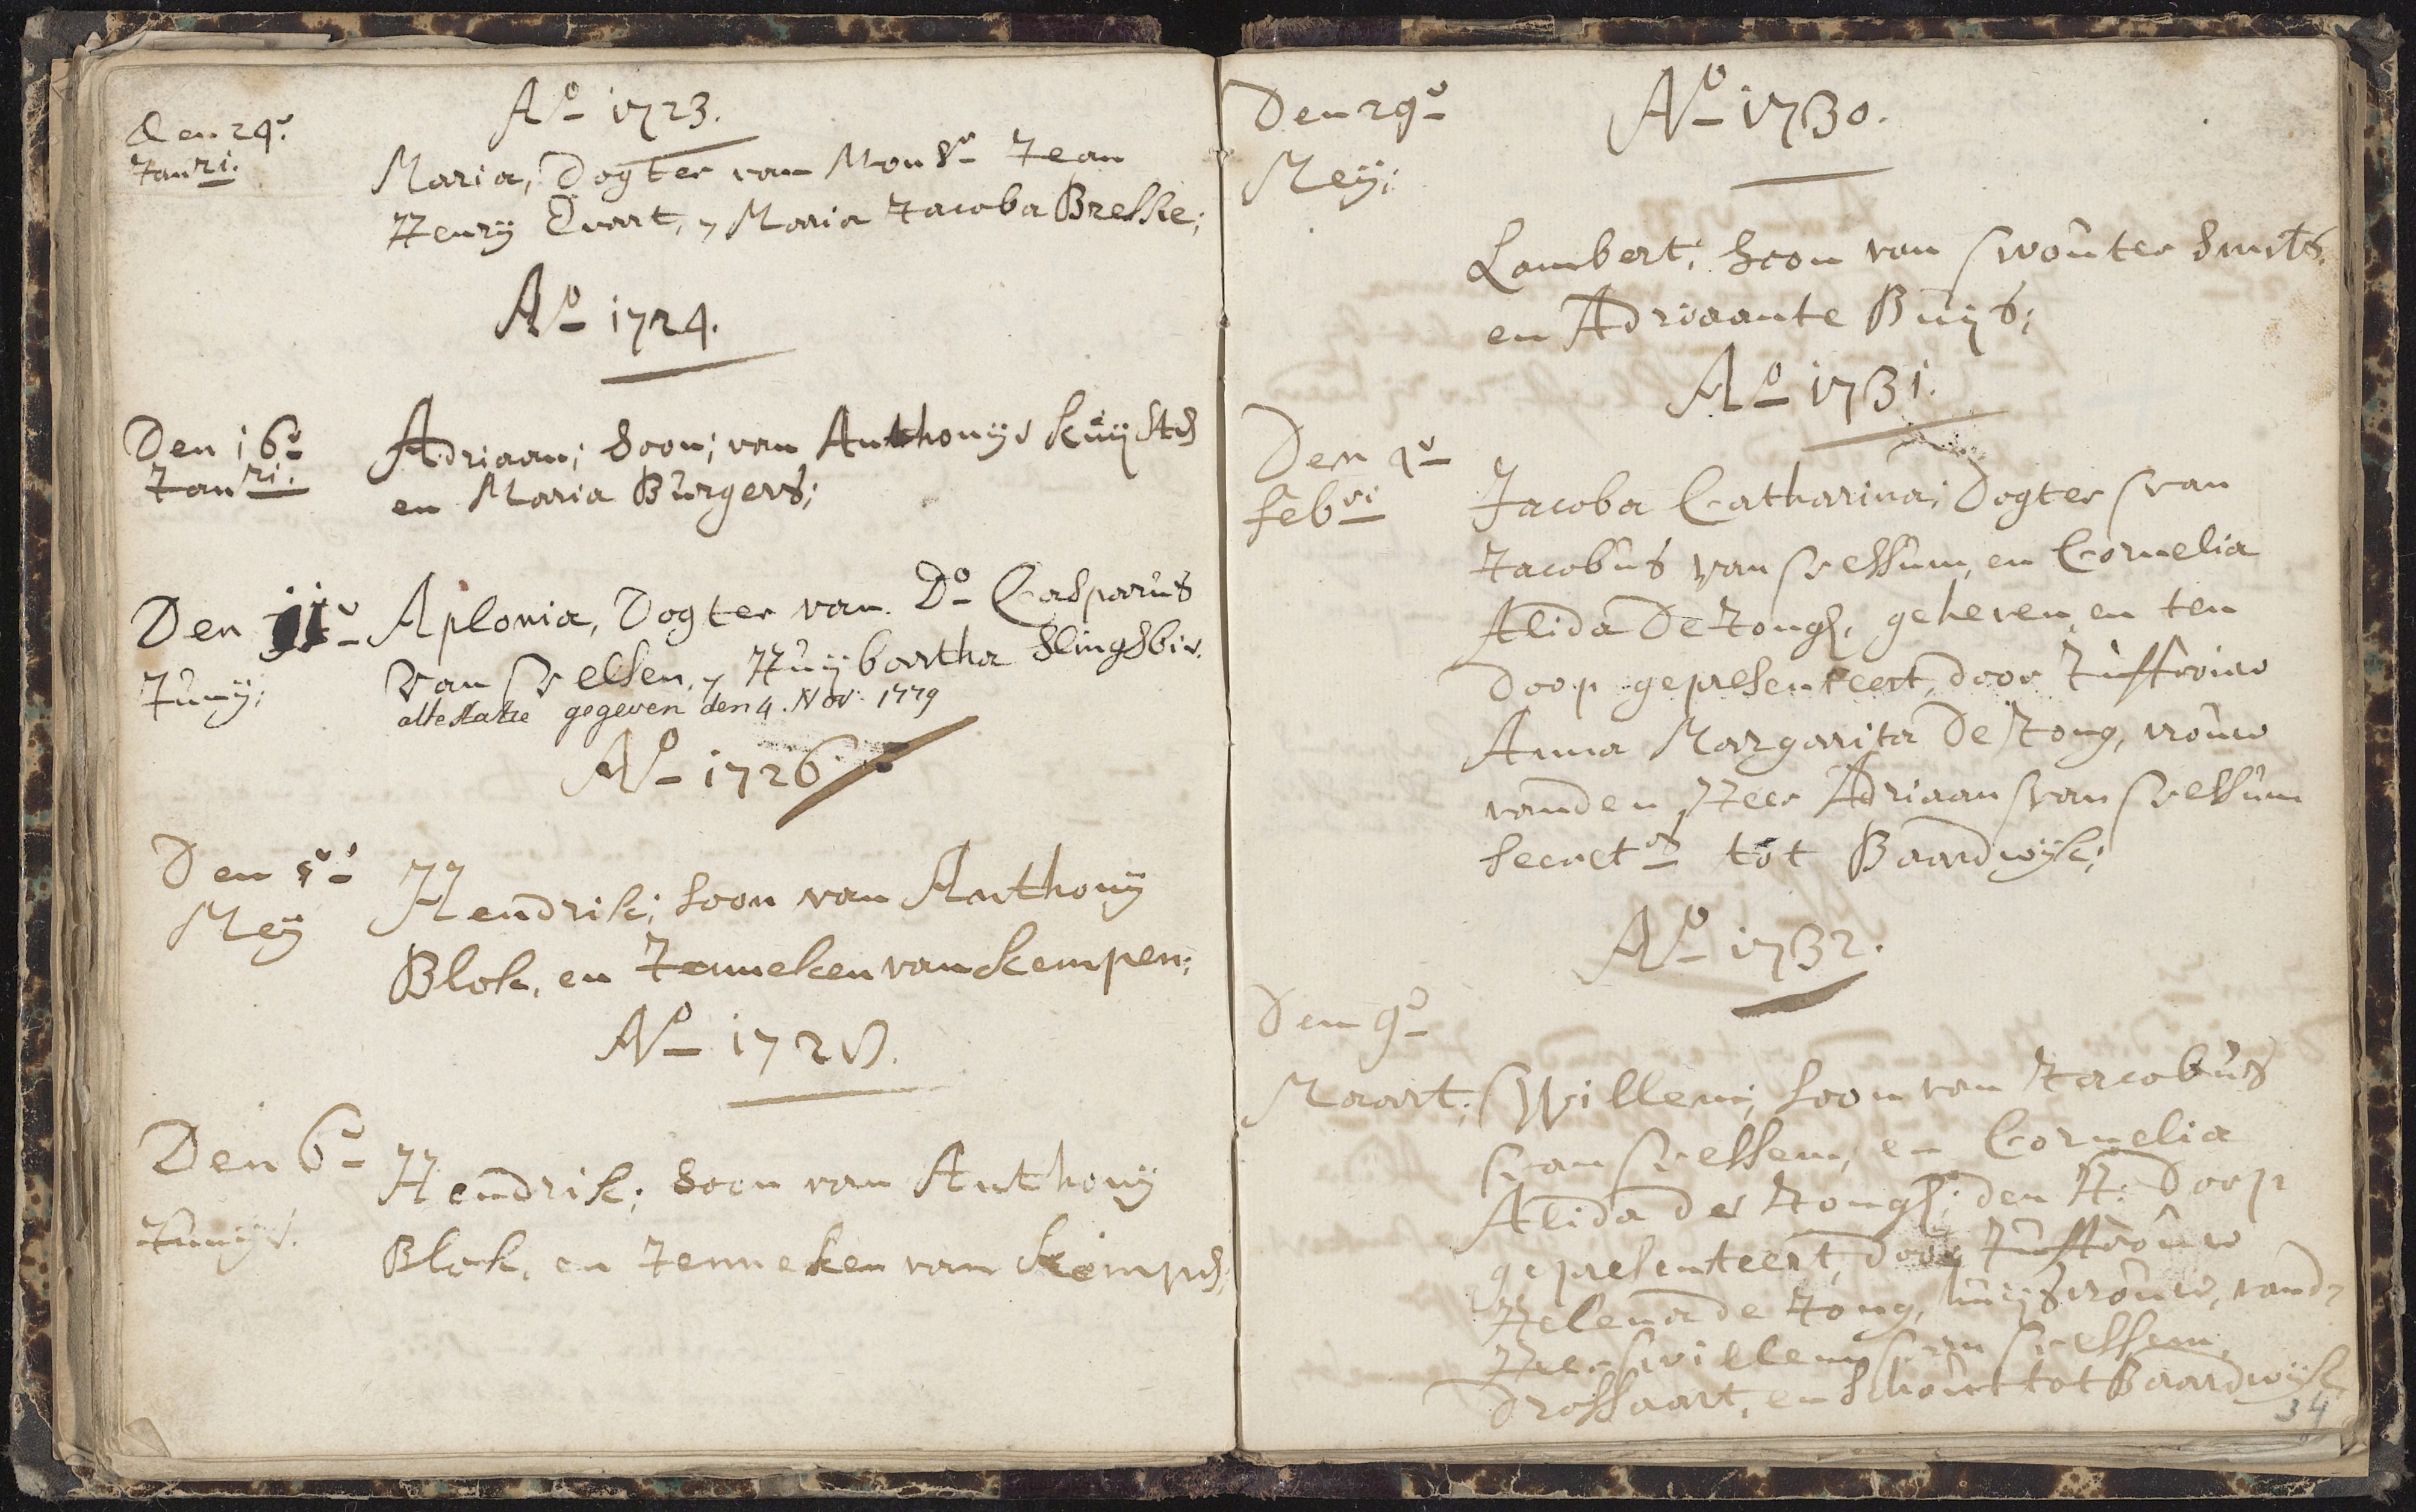 Ao 1723.
Den 24e.
Janri.
Maria, Dogter van Monsr Jean
Henry Evart, y Maria Jacoba Breske;
Ao 1724.
Den 16e
Janri.
Adriaan; Soon; van Anthonys kuyst
en Maria Burgers;
Den 11e
Juny;
Aplonia, Dogter van Do Casparus
van Velsen, y Huybartha Slingsbir.
attestatie gegeven den 4. Nov: 1779
Ao 1726
Den 5e
Mey
Hendrik; soon van Anthony
Blok, en Jenneken van kempen;
Ao 172
Den 6e
Junys.
Hendrik; Soon van Anthony
Blok, en Jenneken van kemp
Ao 1730.
Den 29e
Mey;
Lambert; soon van Wouter Smits.
en Adriaante Buys;
Ao 1731.
Den
Febri
Jacoba Catharina; Dogter van
Jacobus van Vessum, en Cornelia
Alida De Jongh, geheven, en ten
Doop gepresenteert, door Juffrouw
Anna Margarita De Jong, vrouw
vanden Heer Adriaan van Vessum
secrets tot Baardwyk;
Ao 1732.
Den 9e
Maart;
Willem; soon van Jacobus
van Vessem, en Cornelia
Alida de Jongh; den H: Doop
gepresenteert, door Juffrouw
Helena de Jong, huysvrouw, vand
Heer Willem van Vessem,
Drossaart, en Schout tot Baardwyk,
34